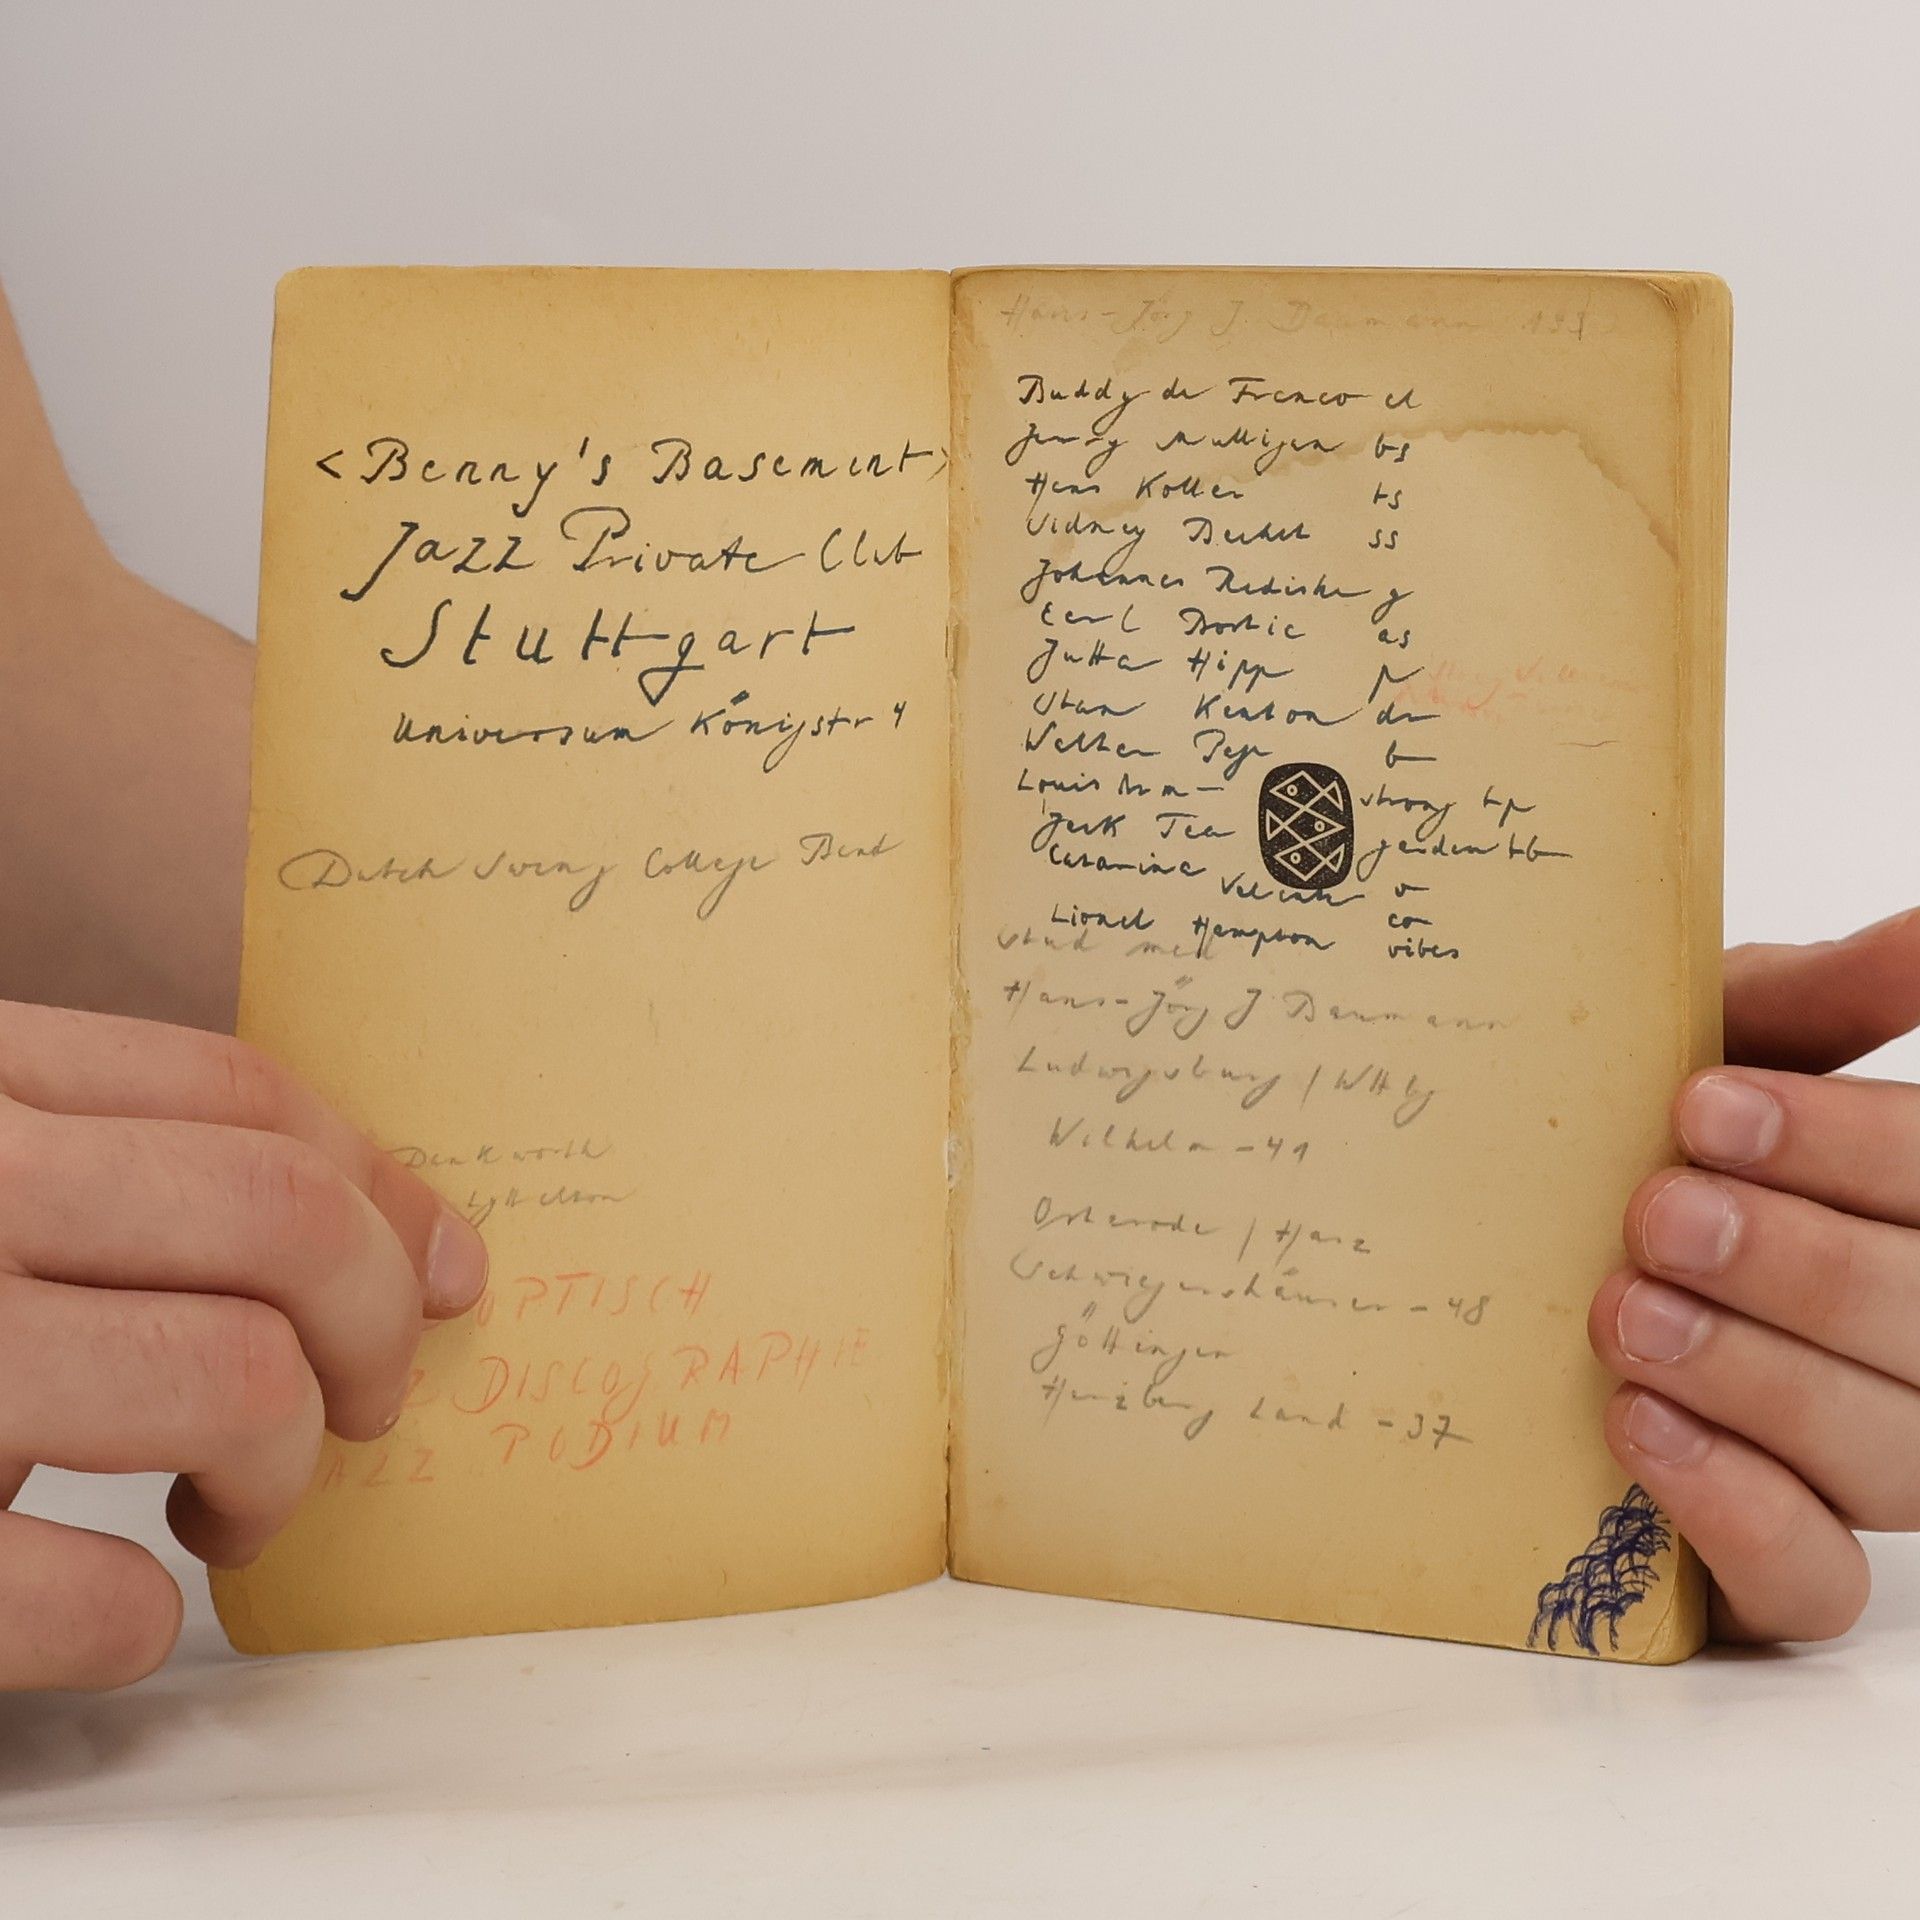 <Benny's Basement>
Jazz Private Club
Stuttgart
Universum Königstr 4
Dutch Swing College Band
Dankworth
Lyttelton
OPTISCH
Z DISCOGRAPHIE
AZZ PODIUM
Hans-Jörg J. Baumann
Buddy de Franco cl
Jerry Mulligan bs
Hans Koller ts
Sidney Bechet ss
Johannes Rediske g
Earl Bostic as
Jutta Hipp p
Stan Kenton dr
Walter Page b
Louis Arm- strong tp
Jack Tea garden tb
Catarina Valente v
co
Lionel Hampton vibes
stud med
Hans-Jörg J Baumann
Ludwigsburg / Wttbg
Wilhelm - 41
Osterode / Harz
Schwiegershäuser - 48
Göttingen
Herzberg Land - 37